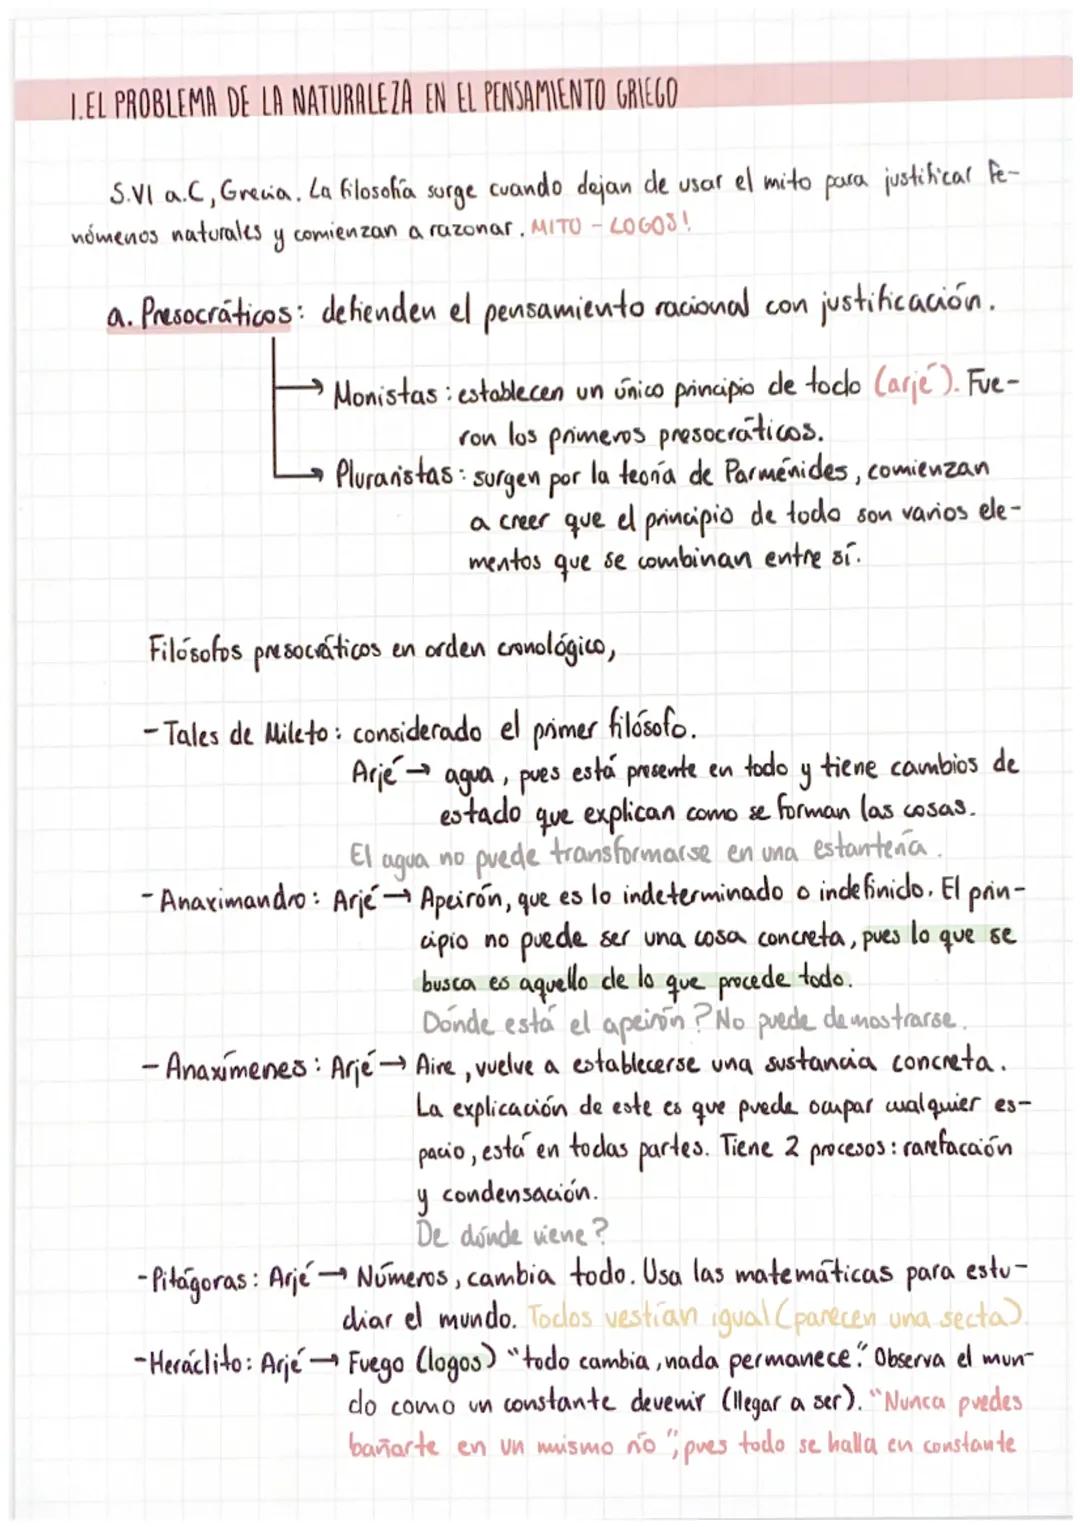 1.EL PROBLEMA DE LA NATURALEZA EN EL PENSAMIENTO GRIEGO
S.VI a.C, Grecia. La filosofía surge cuando dejan de usar el mito para justificar fe-
nómenos naturales y comienzan a razonar. MITO - LOGOS!
a. Presocráticos: defienden el pensamiento racional con justificación.
→ Monistas: establecen un único principio de todo (arjé). Fue-
ron los primeros presocráticos.
→ Pluraristas: surgen por la teoría de Parménides, comienzan
a creer que el principio de todo son varios ele-
mentos que se combinan entre sí.
Filósofos presocráticos en orden cronológico,
- Tales de Mileto: considerado el primer filósofo.
Arjé → agua, pues está presente en todo y tiene cambios de
estado que explican como se forman las cosas.
El agua no puede transformarse en una estantería.
- Anaximandro: Arjé → Apeirón, que es lo indeterminado o indefinido. El prin-
cipio no puede ser una cosa concreta, pues lo que se
busca es aquello de lo que procede todo.
Dónde está el apeirón? No puede demostrarse.
- Anaxímenes: Arjé → Aire, vuelve a establecerse una sustancia concreta.
La explicación de este es que puede ocupar cualquier es-
pacio, está en todas partes. Tiene 2 procesos: rarefacción
y condensación.
De dónde viene?
- Pitágoras: Arjé → Números, cambia todo. Usa las matemáticas para estu-
diar el mundo. Todos vestían igual (parecen una secta).
- Heráclito: Arjé → Fuego (logos) "todo cambia, nada permanece". Observa el mun-
do como un constante devenir (llegar a ser). "Nunca puedes
bañarte en un mismo río", pues todo se halla en constante